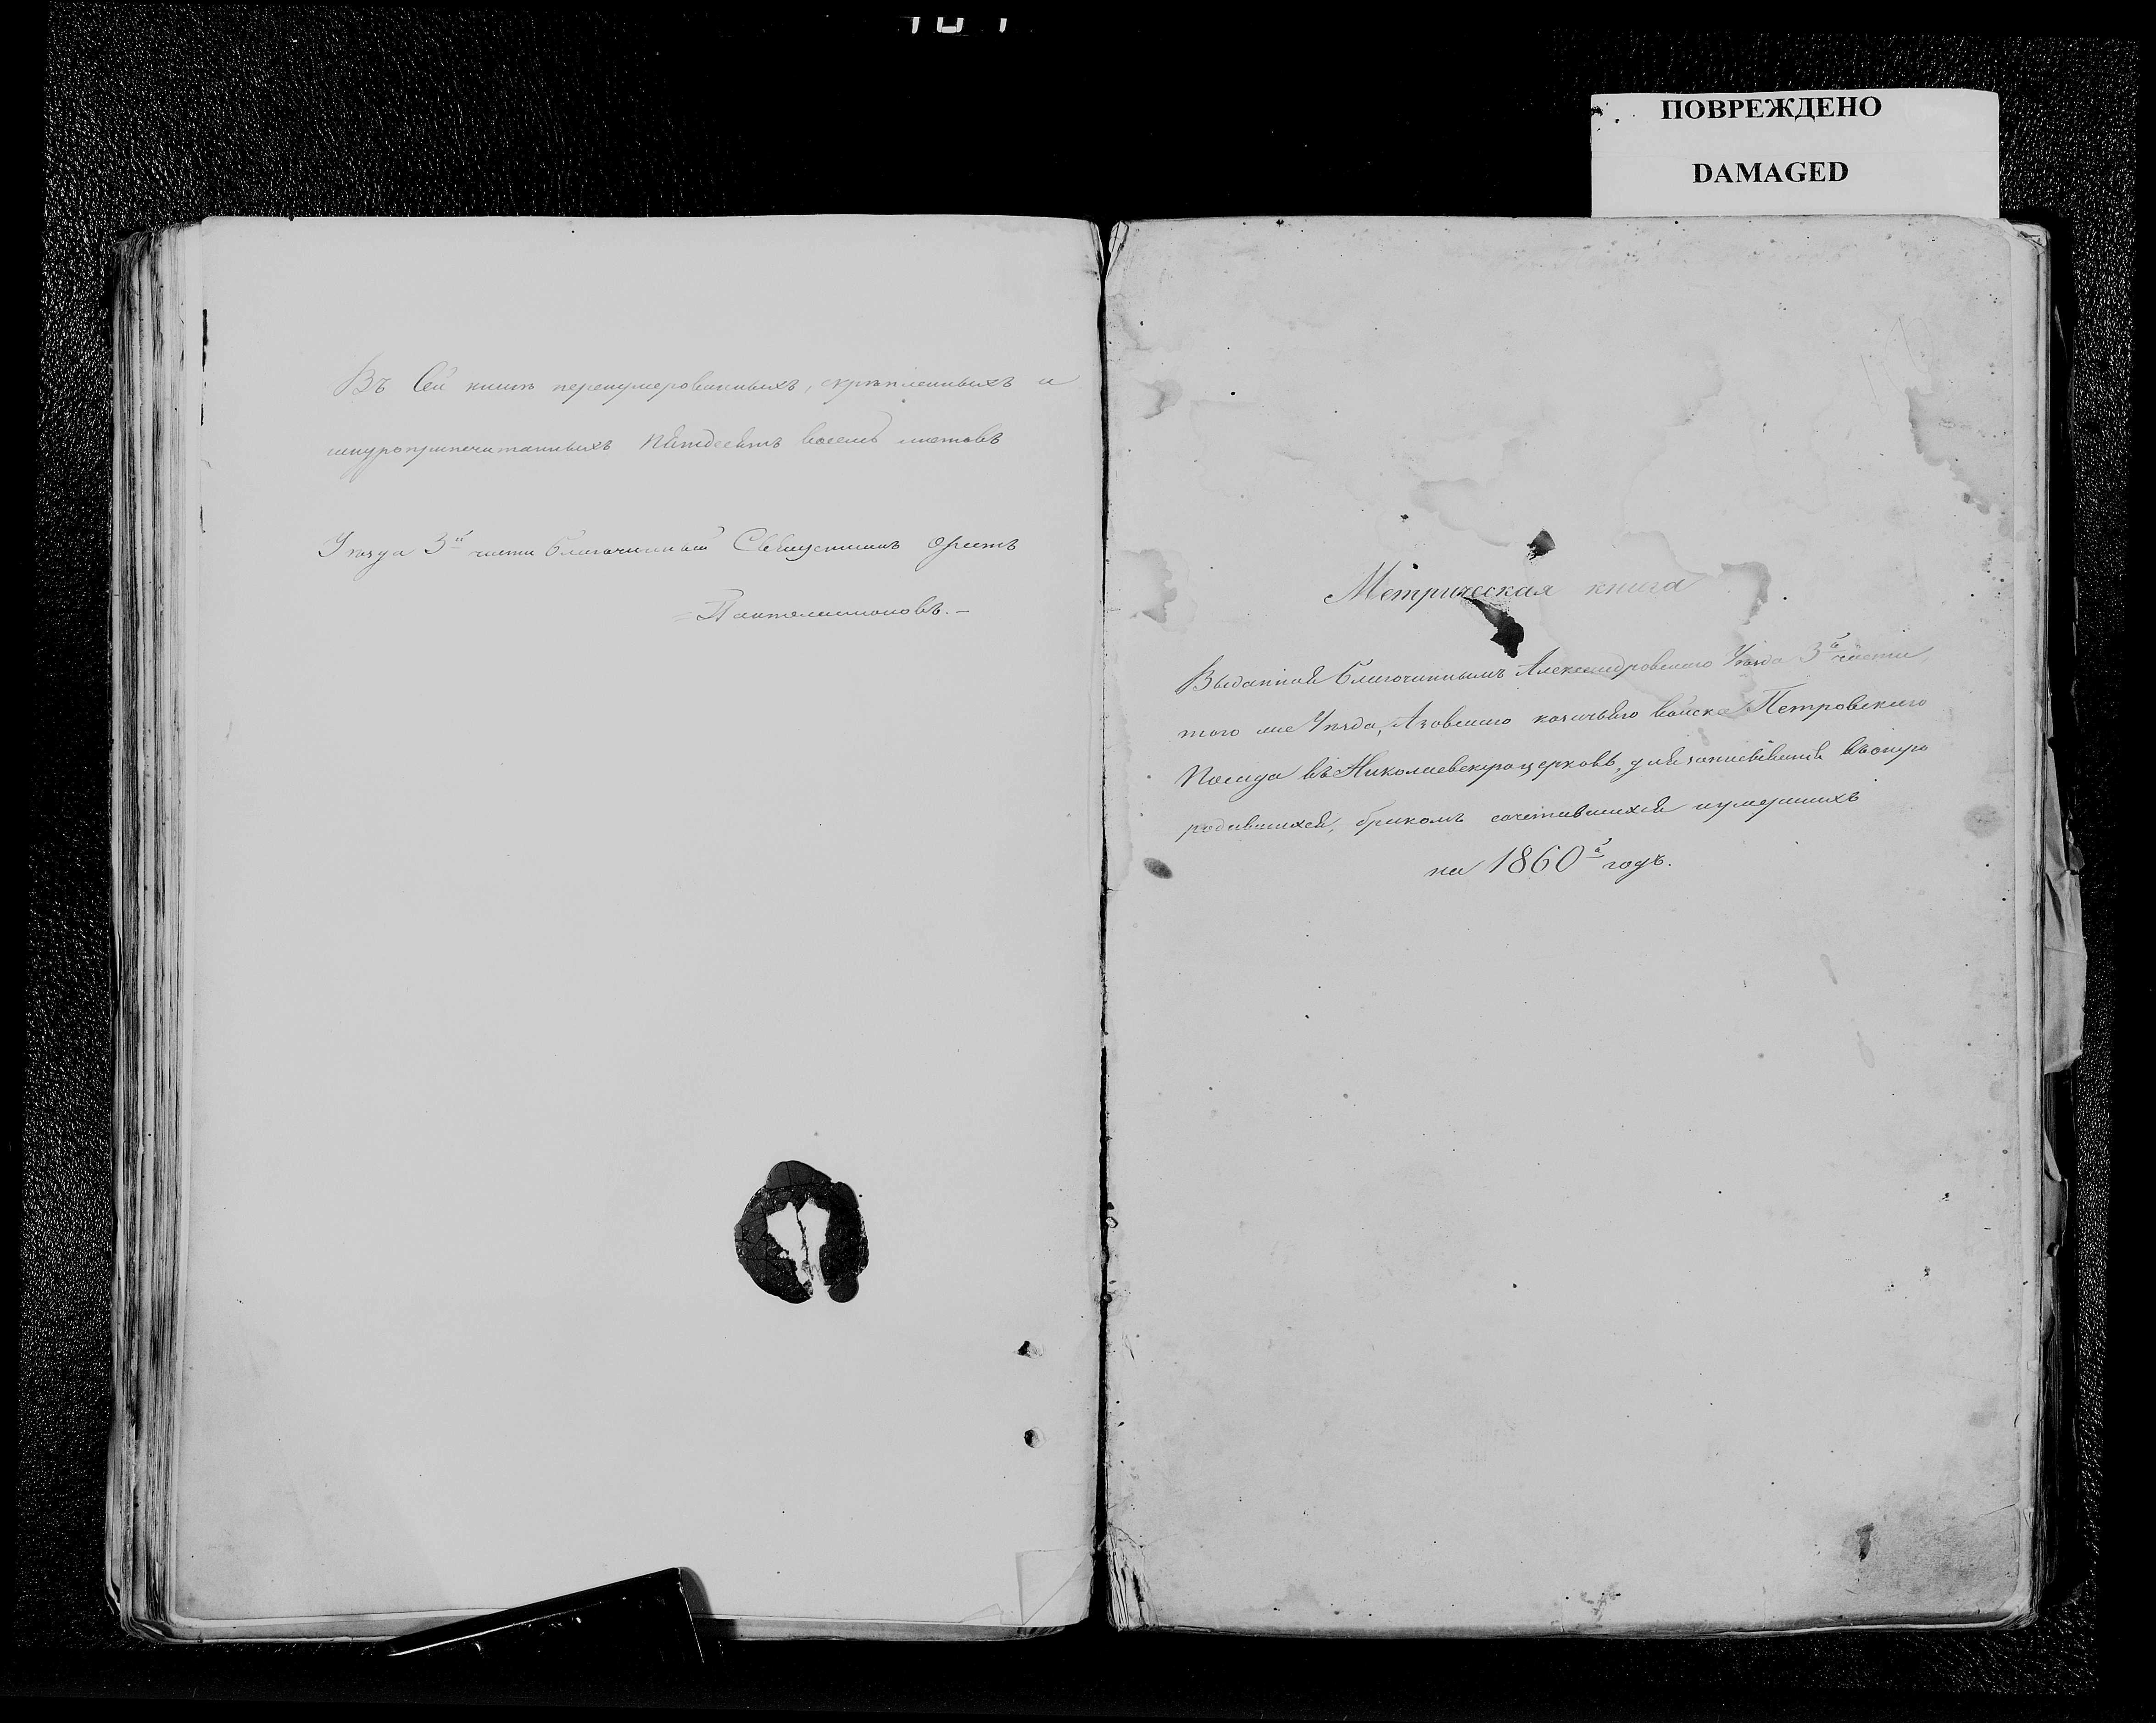 ПОВРЕЖДЕНО
DAMAGED
Въ Сей книгѣ перенумерованныхъ, скрѣпленныхъ и
шнуроприпечатанныхъ пятдесятъ восемь листовъ
Уѣзда 3й части благочинный Священникъ Орестъ
Пантелимоновъ. –
Метрическая книга
Выданная благочиннымъ Александровскаго Уѣзда 3й части
того же Уѣзда, Азовскаго казачьяго войска Петровскаго
Посада въ Николаевскую церковь, для записыванія въ оную
родившихся, бракомъ сочетавшихся и умершихъ
на 1860й годъ.